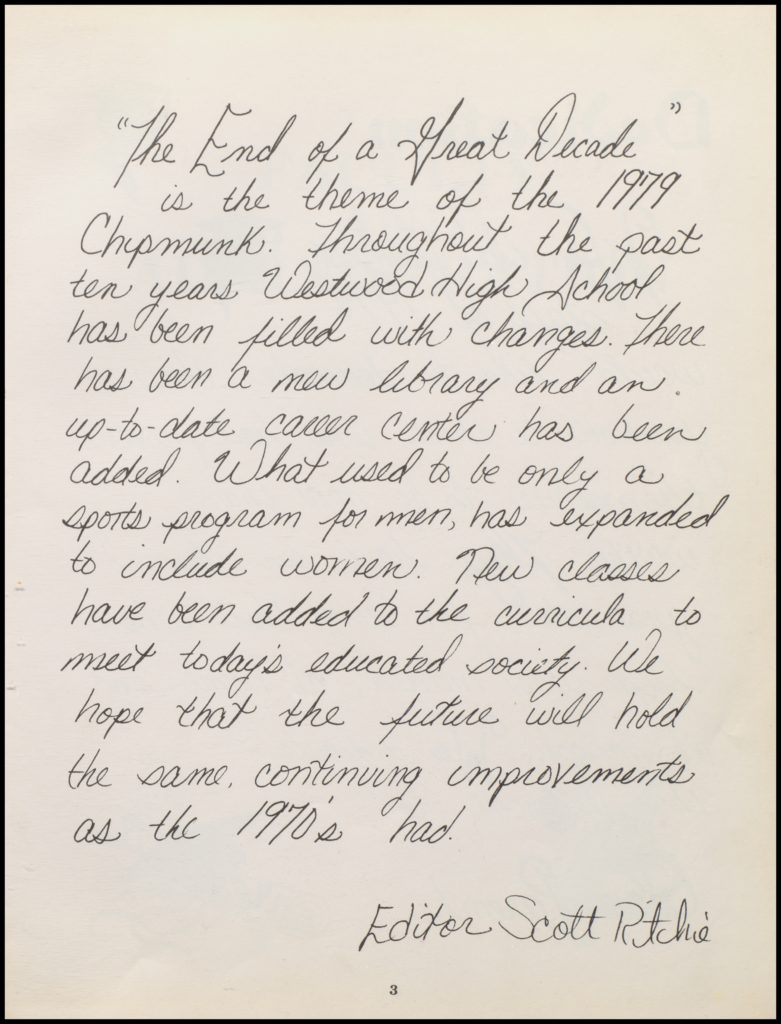 "The End of a Great Decade"
is the theme of the 1979
Chipmunk. Throughout the past
ten years Westwood High School
has been filled with changes. There
has been a new library and an
up-to-date career center has been
added. What used to be only a
sports program for men, has expanded
to include women. New classes
have been added to the curricula to
meet today's educated society. We
hope that the future will hold
the same, continuing improvements
as the 1970's had.
Editor Scott Ritchie
3